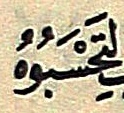 لِتَحْسَبُوهُ